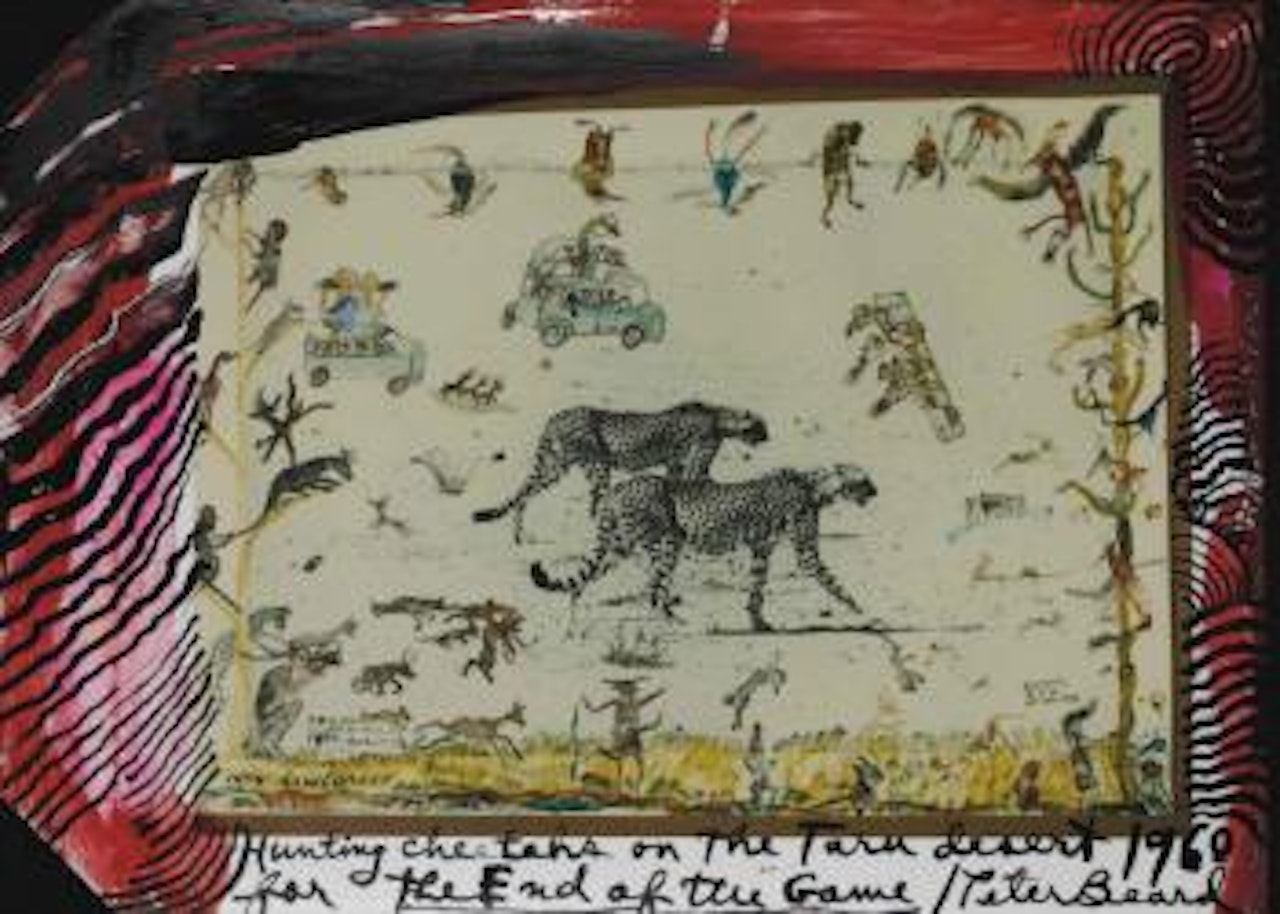 Hunting cheetahs on The Taru desert 1960
for The End of the Game / Peter Beard